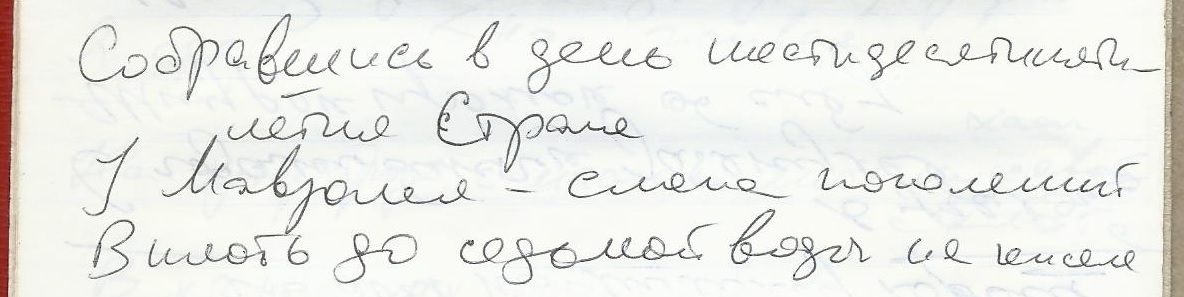 Собравшись в день шестидесятипяти-
летия Страны
У Мавзолея - смена поколений
Вплоть до седьмой воды на киселе